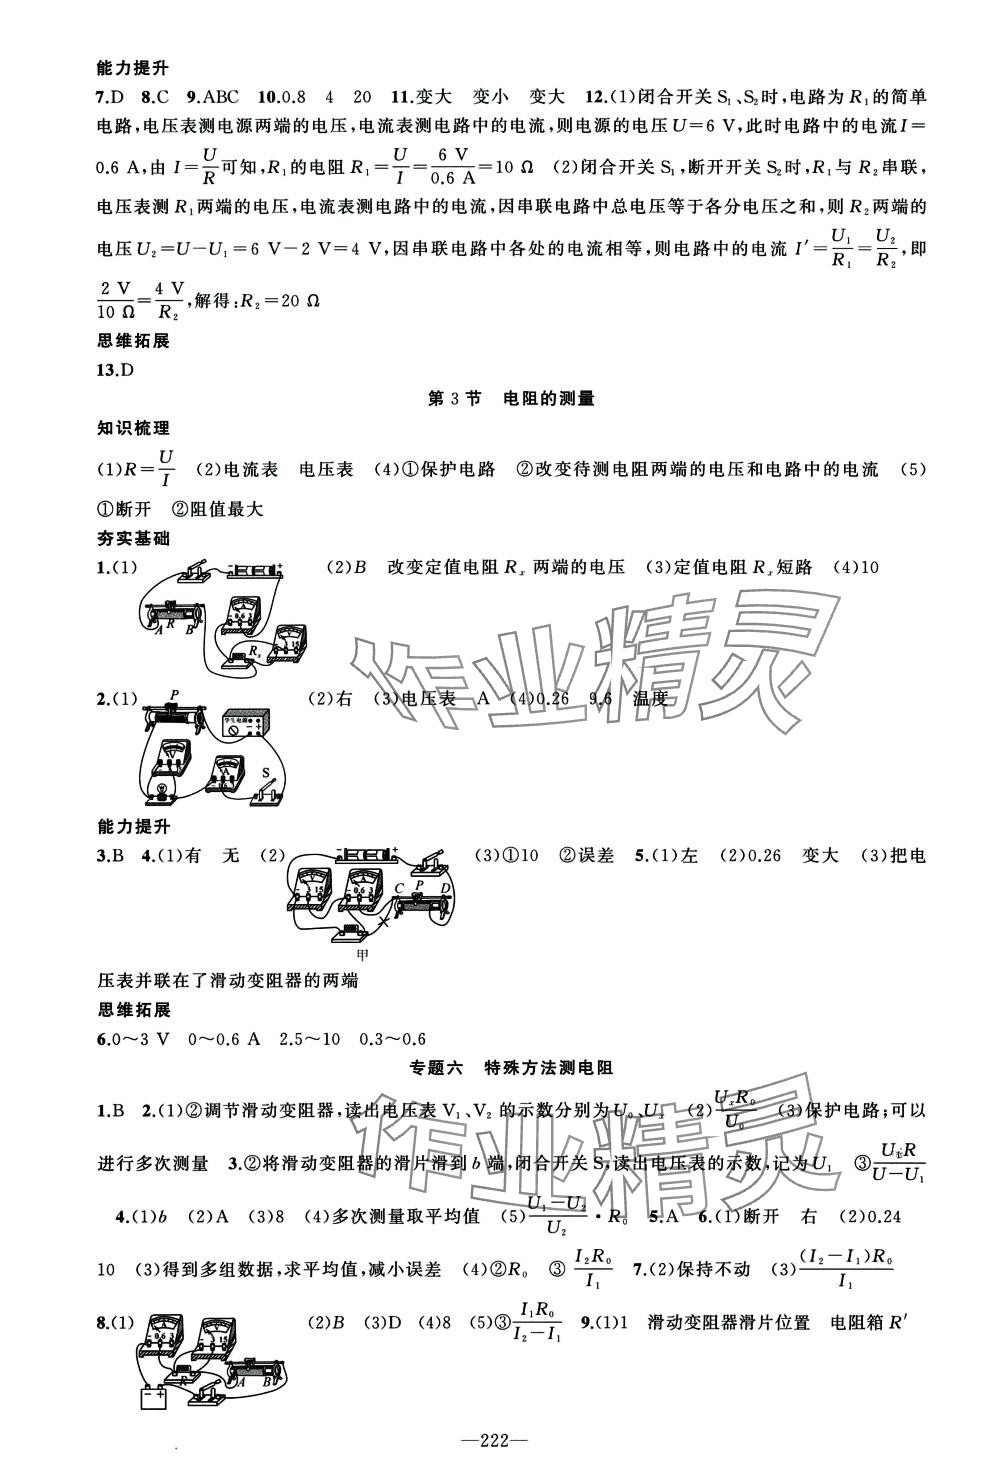 能力提升
7.D 8.C 9.ABC 10.0.8 4 20 11.变大 变小 变大 12.(1)闭合开关 S₁、S₂时,电路为 R₁的简单
电路,电压表测电源两端的电压,电流表测电路中的电流,则电源的电压 U=6 V,此时电路中的电流 I=
0.6 A,由 I=U/R可知,R₁的电阻 R₁=U/I=6 V/0.6 A=10 Ω (2)闭合开关 S₁,断开开关 S₂时,R₁与 R₂串联,
电压表测 R₁两端的电压,电流表测电路中的电流,因串联电路中总电压等于各分电压之和,则 R₂两端的
电压 U₂=U-U₁=6 V-2 V=4 V,因串联电路中各处的电流相等,则电路中的电流 I′=U₁/R₁=U₂/R₂,即
2 V/10 Ω=4 V/R₂,解得:R₂=20 Ω
思维拓展
13.D
第 3 节 电阻的测量
知识梳理
(1)R=U/I (2)电流表 电压表 (4)①保护电路 ②改变待测电阻两端的电压和电路中的电流 (5)
①断开 ②阻值最大
夯实基础
1.(1) (2)B 改变定值电阻 Rₓ 两端的电压 (3)定值电阻 Rₓ短路 (4)10
- +
A 0.6 3
A R B
V 3 15
Rₓ
2.(1) (2)右 (3)电压表 A (4)0.26 9.6 温度
P
学生电源
- +
V
A
S
0.6
能力提升
3.B 4.(1)有 无 (2) (3)①10 ②误差 5.(1)左 (2)0.26 变大 (3)把电
- +
V 3 15
A 0.6 3
C P D
甲
压表并联在了滑动变阻器的两端
思维拓展
6.0～3 V 0～0.6 A 2.5～10 0.3～0.6
专题六 特殊方法测电阻
1.B 2.(1)②调节滑动变阻器,读出电压表 V₁、V₂ 的示数分别为 U₀、Uₓ (2)UₓR₀/U₀ (3)保护电路;可以
进行多次测量 3.②将滑动变阻器的滑片滑到 b 端,闭合开关 S,读出电压表的示数,记为 U₁ ③U₁R/(U-U₁)
4.(1)b (2)A (3)8 (4)多次测量取平均值 (5)(U₁-U₂)/U₂·R₀ 5.A 6.(1)断开 右 (2)0.24
10 (3)得到多组数据,求平均值,减小误差 (4)②R₀ ③I₂R₀/I₁ 7.(2)保持不动 (3)(I₂-I₁)R₀/I₁
8.(1) (2)B (3)D (4)8 (5)③I₁R₀/(I₂-I₁) 9.(1)1 滑动变阻器滑片位置 电阻箱 R′
A 0.6 3
V 3 15
R
A B
- +
作业精灵
作业精灵
—222—